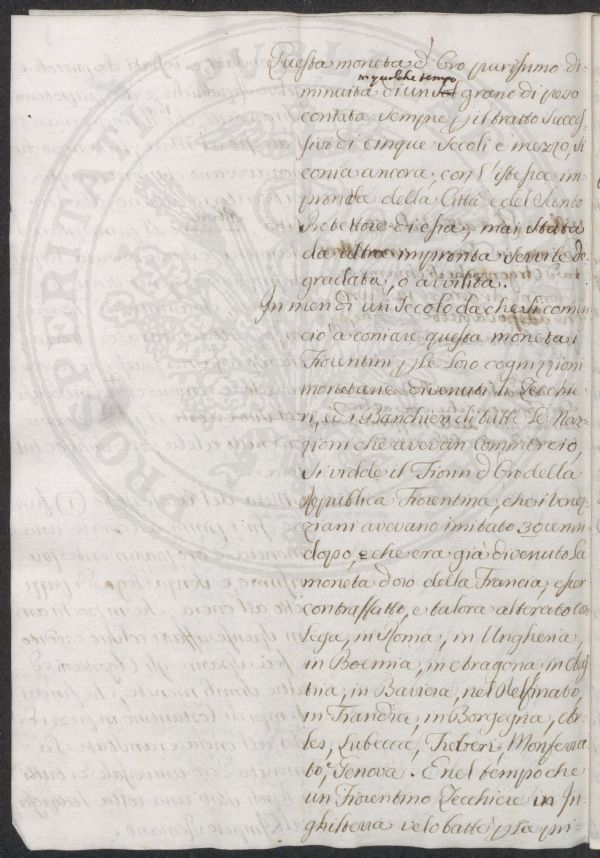 Questa moneta d'Oro purissimo di-
in qualche tempo
minuita di un grano di peso
contata sempre p il tratto succes-
sivo di cinque secoli e mezzo, si
conia ancora, con l'istessa im-
pronta della Città e del Santo
Protettore di essa, mai stata
da altra impronta servile de-
gradata, o avvilita.
In men di un secolo da che si comin-
ciò a coniare questa moneta i
Fiorentini p le loro cognizioni
monetarie divenuti li Zecchie-
ri, ed i Banchieri di tutte le Na-
zioni che avevan Commercio,
Si vidde il Fiorin d'Oro della
Repubblica Fiorentina, che i Vene-
ziani avevano imitato 30 anni
dopo, e che era già divenuto la
moneta d'oro della Francia, esser
contraffatto, e talora alterato con
Lega, in Roma, in Ungheria,
in Boemia, in Aragona, in Aus-
tria, in Baviera, nel Delfinato,
in Fiandra, in Borgogna, Ar-
les, Lubecca, Treveri, Monferra-
to, Genova. E nel tempo che
un Fiorentino Zecchiere in In-
ghilterra ve lo batte p la pri-
PROSPERITATI PUBLICAE